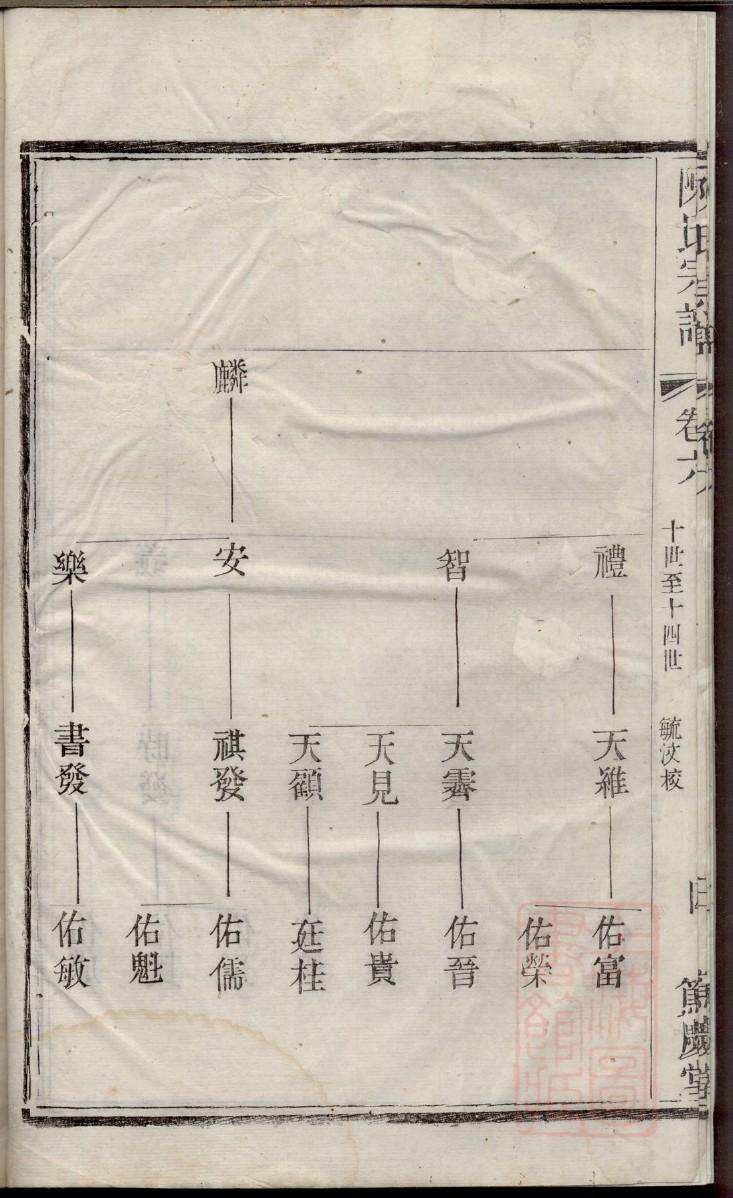 陳氏宗譜
卷六
十世至十四世
毓汶校
篤慶堂
禮
天雒
佑富
佑榮
智
天霽
佑晉
天見
佑貴
天顧
廷桂
麟
安
祺發
佑儒
佑魁
樂
書發
佑敏